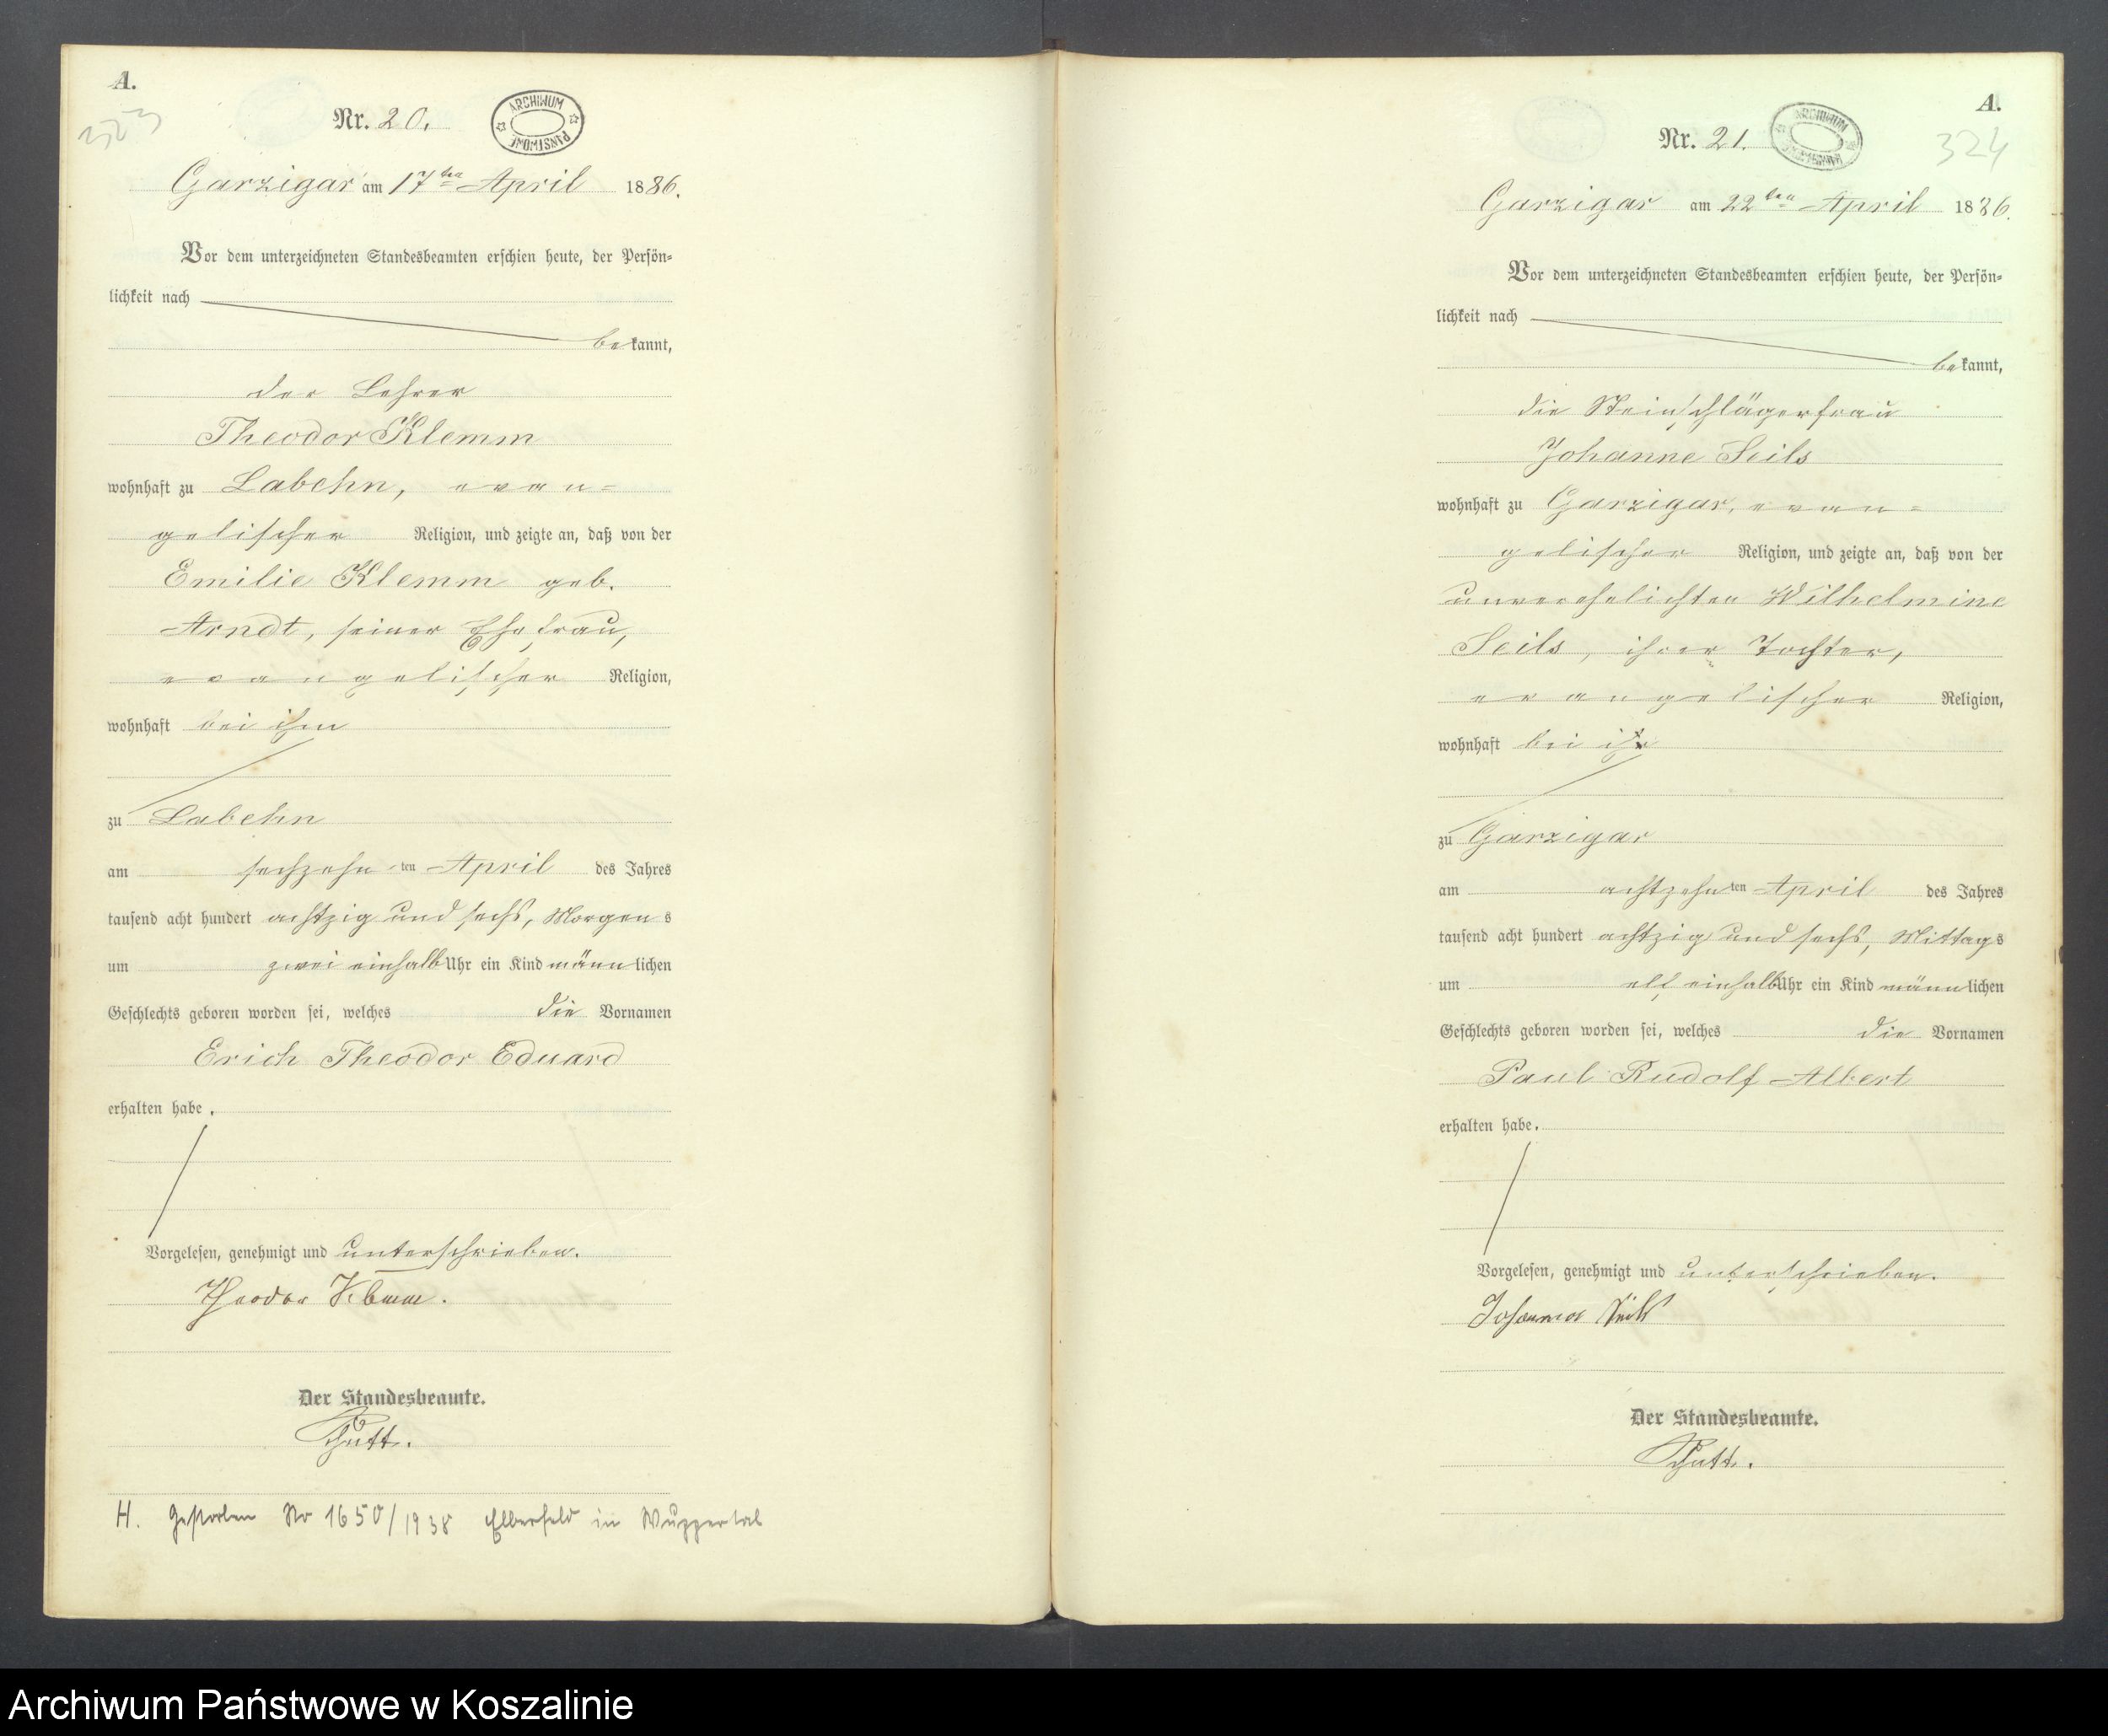 A.
323
Nr. 20.
ARCHIWUM PAŃSTWOWE
Garzigar am 17ten April 1886.
Vor dem unterzeichneten Standesbeamten erschien heute, der Persön-
lichkeit nach
bekannt,
der Lehrer
Theodor Klemm
wohnhaft zu Labehn, evan-
gelischer Religion, und zeigte an, daß von der
Emilie Klemm geb.
Arndt, seiner Ehefrau,
evangelischer Religion,
wohnhaft bei ihm
zu Labehn
am sechzehnten April des Jahres
tausend acht hundert achtzig und sechs, Morgens
um zwei einhalb Uhr ein Kind männlichen
Geschlechts geboren worden sei, welches die Vornamen
Erich Theodor Eduard
erhalten habe.
Vorgelesen, genehmigt und unterschrieben.
Theodor Klemm.
Der Standesbeamte.
H. Gestorben No 1650/1938 Elberfeld in Wuppertal
A.
324
Nr. 21.
ARCHIWUM PAŃSTWOWE
Garzigar am 22ten April 1886.
Vor dem unterzeichneten Standesbeamten erschien heute, der Persön-
lichkeit nach
bekannt,
die Steinschlägerfrau
Johanne Seils
wohnhaft zu Garzigar, evan-
gelischer Religion, und zeigte an, daß von der
unverehelichten Wilhelmine
Seils, ihrer Tochter,
evangelischer Religion,
wohnhaft bei ihr
zu Garzigar
am achtzehnten April des Jahres
tausend acht hundert achtzig und sechs, Mittags
um elf einhalb Uhr ein Kind männlichen
Geschlechts geboren worden sei, welches die Vornamen
Paul Rudolf Albert
erhalten habe.
Vorgelesen, genehmigt und unterschrieben.
Johanna Seils
Der Standesbeamte.
Archiwum Państwowe w Koszalinie